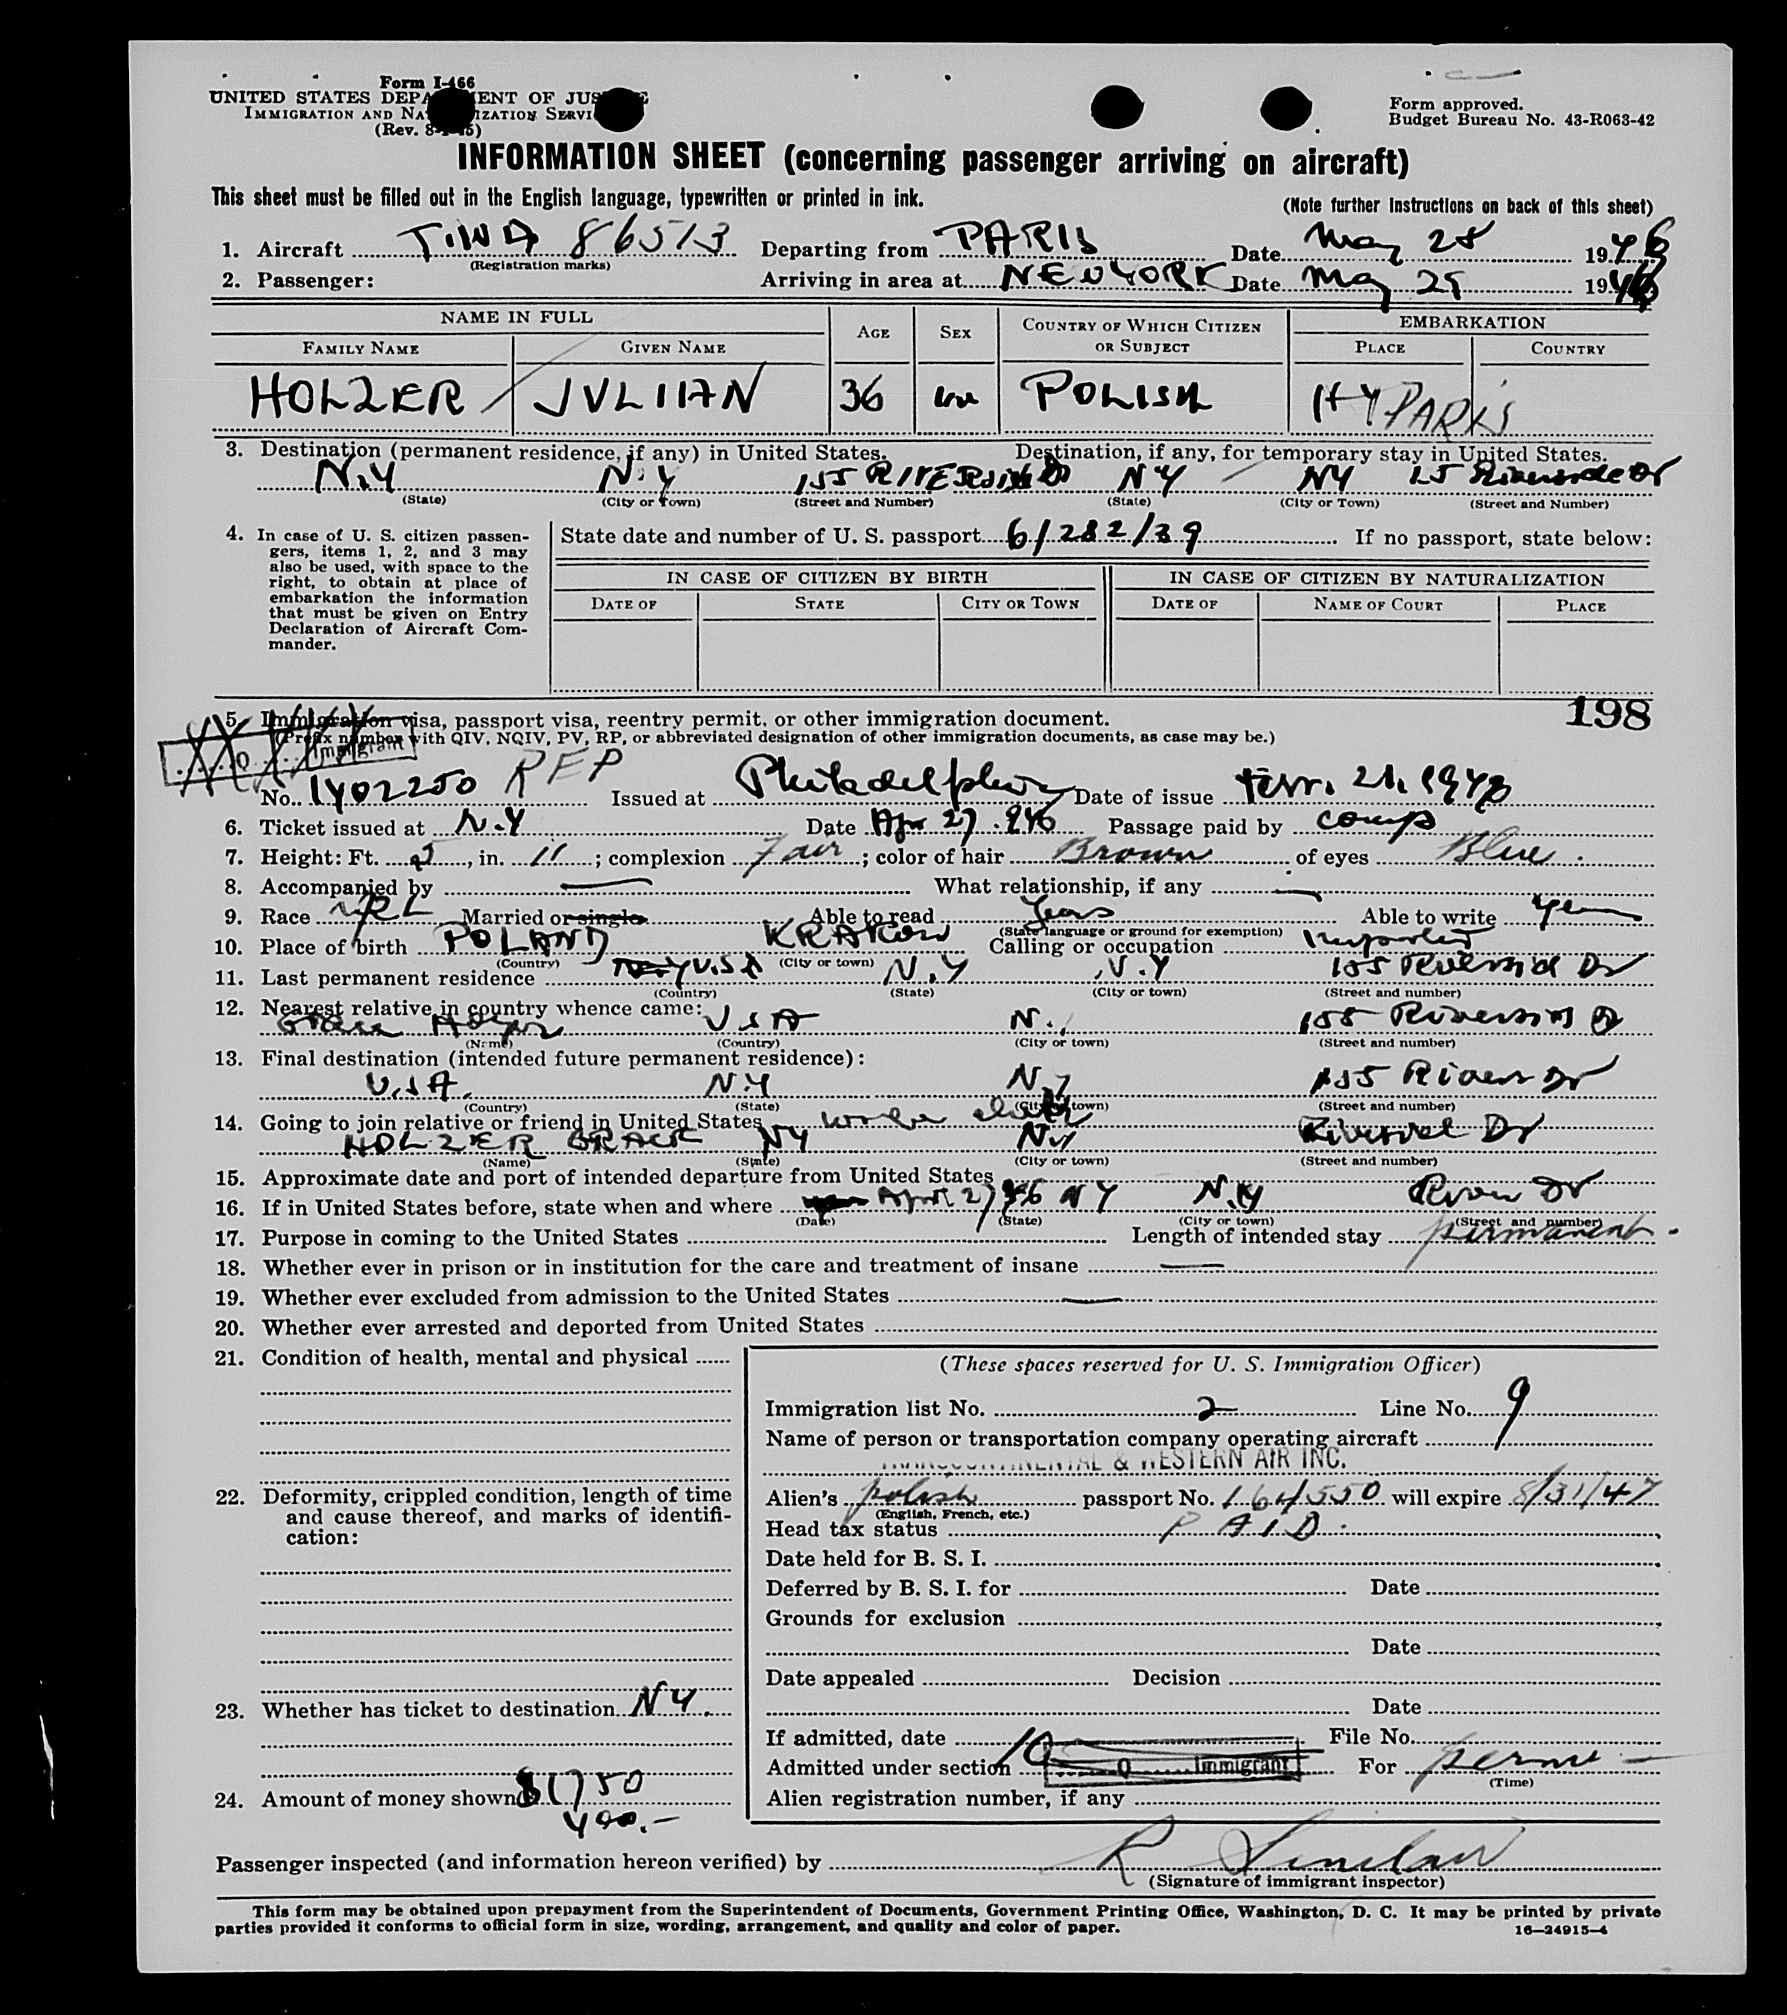 Form I-466
UNITED STATES DEPARTMENT OF JUSTICE
IMMIGRATION AND NATURALIZATION SERVICE
(Rev. 8-1-45)
Form approved.
Budget Bureau No. 43-R063-42
INFORMATION SHEET (concerning passenger arriving on aircraft)
This sheet must be filled out in the English language, typewritten or printed in ink.
(Note further instructions on back of this sheet)
1. Aircraft T.W.A 86513 Departing from PARIS Date May 28 1946
(Registration marks)
2. Passenger: Arriving in area at NEW YORK Date May 29 1946
NAME IN FULL AGE SEX COUNTRY OF WHICH CITIZEN OR SUBJECT EMBARKATION
FAMILY NAME GIVEN NAME PLACE COUNTRY
HOLZER JULIIAN 36 POLISH PARIS
3. Destination (permanent residence, if any) in United States. Destination, if any, for temporary stay in United States.
N.Y N.Y 155 RIVERSIDE D NY NY 15 Riverside Dr
(State) (City or Town) (Street and Number) (State) (City or Town) (Street and Number)
4. In case of U. S. citizen passengers, items 1, 2, and 3 may also be used, with space to the right, to obtain at place of embarkation the information that must be given on Entry Declaration of Aircraft Commander.
State date and number of U. S. passport 6/282/39 If no passport, state below:
IN CASE OF CITIZEN BY BIRTH IN CASE OF CITIZEN BY NATURALIZATION
DATE OF STATE CITY OR TOWN DATE OF NAME OF COURT PLACE
198
5. Immigration visa, passport visa, reentry permit, or other immigration document.
(Prefix number with QIV, NQIV, PV, RP, or abbreviated designation of other immigration documents, as case may be.)
Q Immigrant
No. 1402250 REP Issued at Philadelphia Date of issue 21, 1946
6. Ticket issued at N.Y Date Apr 27. 946 Passage paid by comp
7. Height: Ft. 5, in. 11; complexion Fair; color of hair Brown of eyes Blue.
8. Accompanied by — What relationship, if any —
9. Race Married or single Able to read Able to write
(State language or ground for exemption)
10. Place of birth POLAND KRAKOW Calling or occupation
(Country) (City or town)
11. Last permanent residence U.S.A N.Y N.Y 155 Riverside Dr
(Country) (State) (City or town) (Street and number)
12. Nearest relative in country whence came:
U S A N. 155 Riverside Dr
(Name) (Country) (City or town) (Street and number)
13. Final destination (intended future permanent residence):
U.S.A. N.Y N.Y 155 River Dr
(Country) (State) (City or town) (Street and number)
14. Going to join relative or friend in United States
HOLZER GRACE NY NY Riverside Dr
(Name) (State) (City or town) (Street and number)
15. Approximate date and port of intended departure from United States
16. If in United States before, state when and where April 27 46 NY N.Y River Dr
(Date) (State) (City or town) (Street and number)
17. Purpose in coming to the United States Length of intended stay permanent.
18. Whether ever in prison or in institution for the care and treatment of insane —
19. Whether ever excluded from admission to the United States —
20. Whether ever arrested and deported from United States
21. Condition of health, mental and physical
(These spaces reserved for U. S. Immigration Officer)
Immigration list No. 2 Line No. 9
Name of person or transportation company operating aircraft
TRANSCONTINENTAL & WESTERN AIR INC.
22. Deformity, crippled condition, length of time and cause thereof, and marks of identification:
Alien's polish passport No. 164550 will expire 8/31/47
(English, French, etc.)
Head tax status PAID.
Date held for B. S. I.
Deferred by B. S. I. for Date
Grounds for exclusion
Date
Date appealed Decision
23. Whether has ticket to destination NY.
Date
If admitted, date File No.
Admitted under section Q Immigrant For perm
(Time)
24. Amount of money shown $1750
400.-
Alien registration number, if any
Passenger inspected (and information hereon verified) by R Sinclair
(Signature of immigrant inspector)
This form may be obtained upon prepayment from the Superintendent of Documents, Government Printing Office, Washington, D. C. It may be printed by private
parties provided it conforms to official form in size, wording, arrangement, and quality and color of paper.
16—24915-4